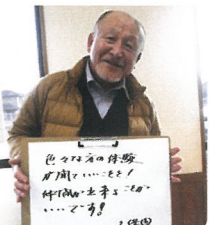 色々な方の体験
が聞ていいことを!
仲間が出来ることが
いいです!